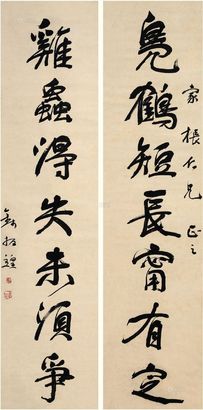 鳧鶴短長甯有定
家根仁兄正之
雞蟲得失未須爭